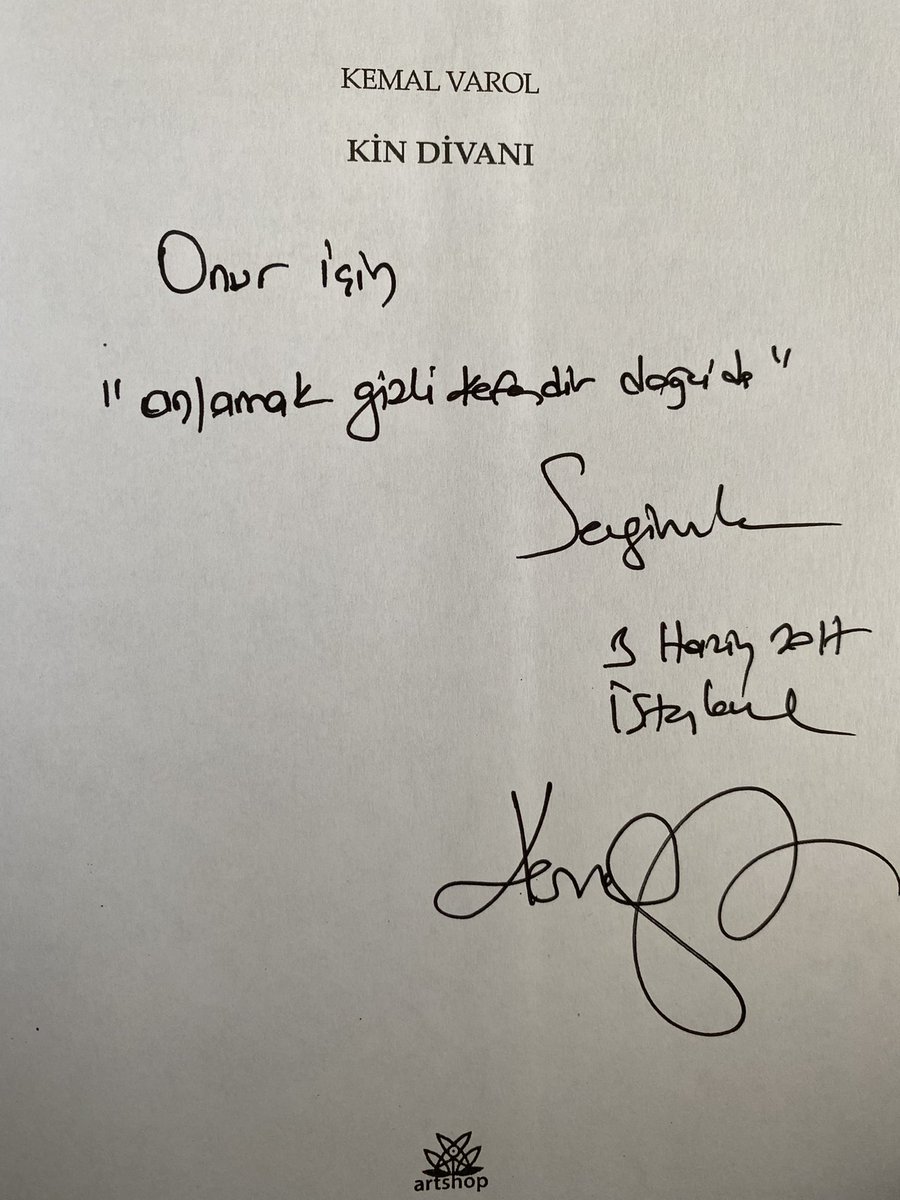 KEMAL VAROL
KİN DİVANI
Onur için
"anlamak gizli kefendir doğu'da"
Sevgimle
3 Haziran 2017
İstanbul
Kemal
artshop